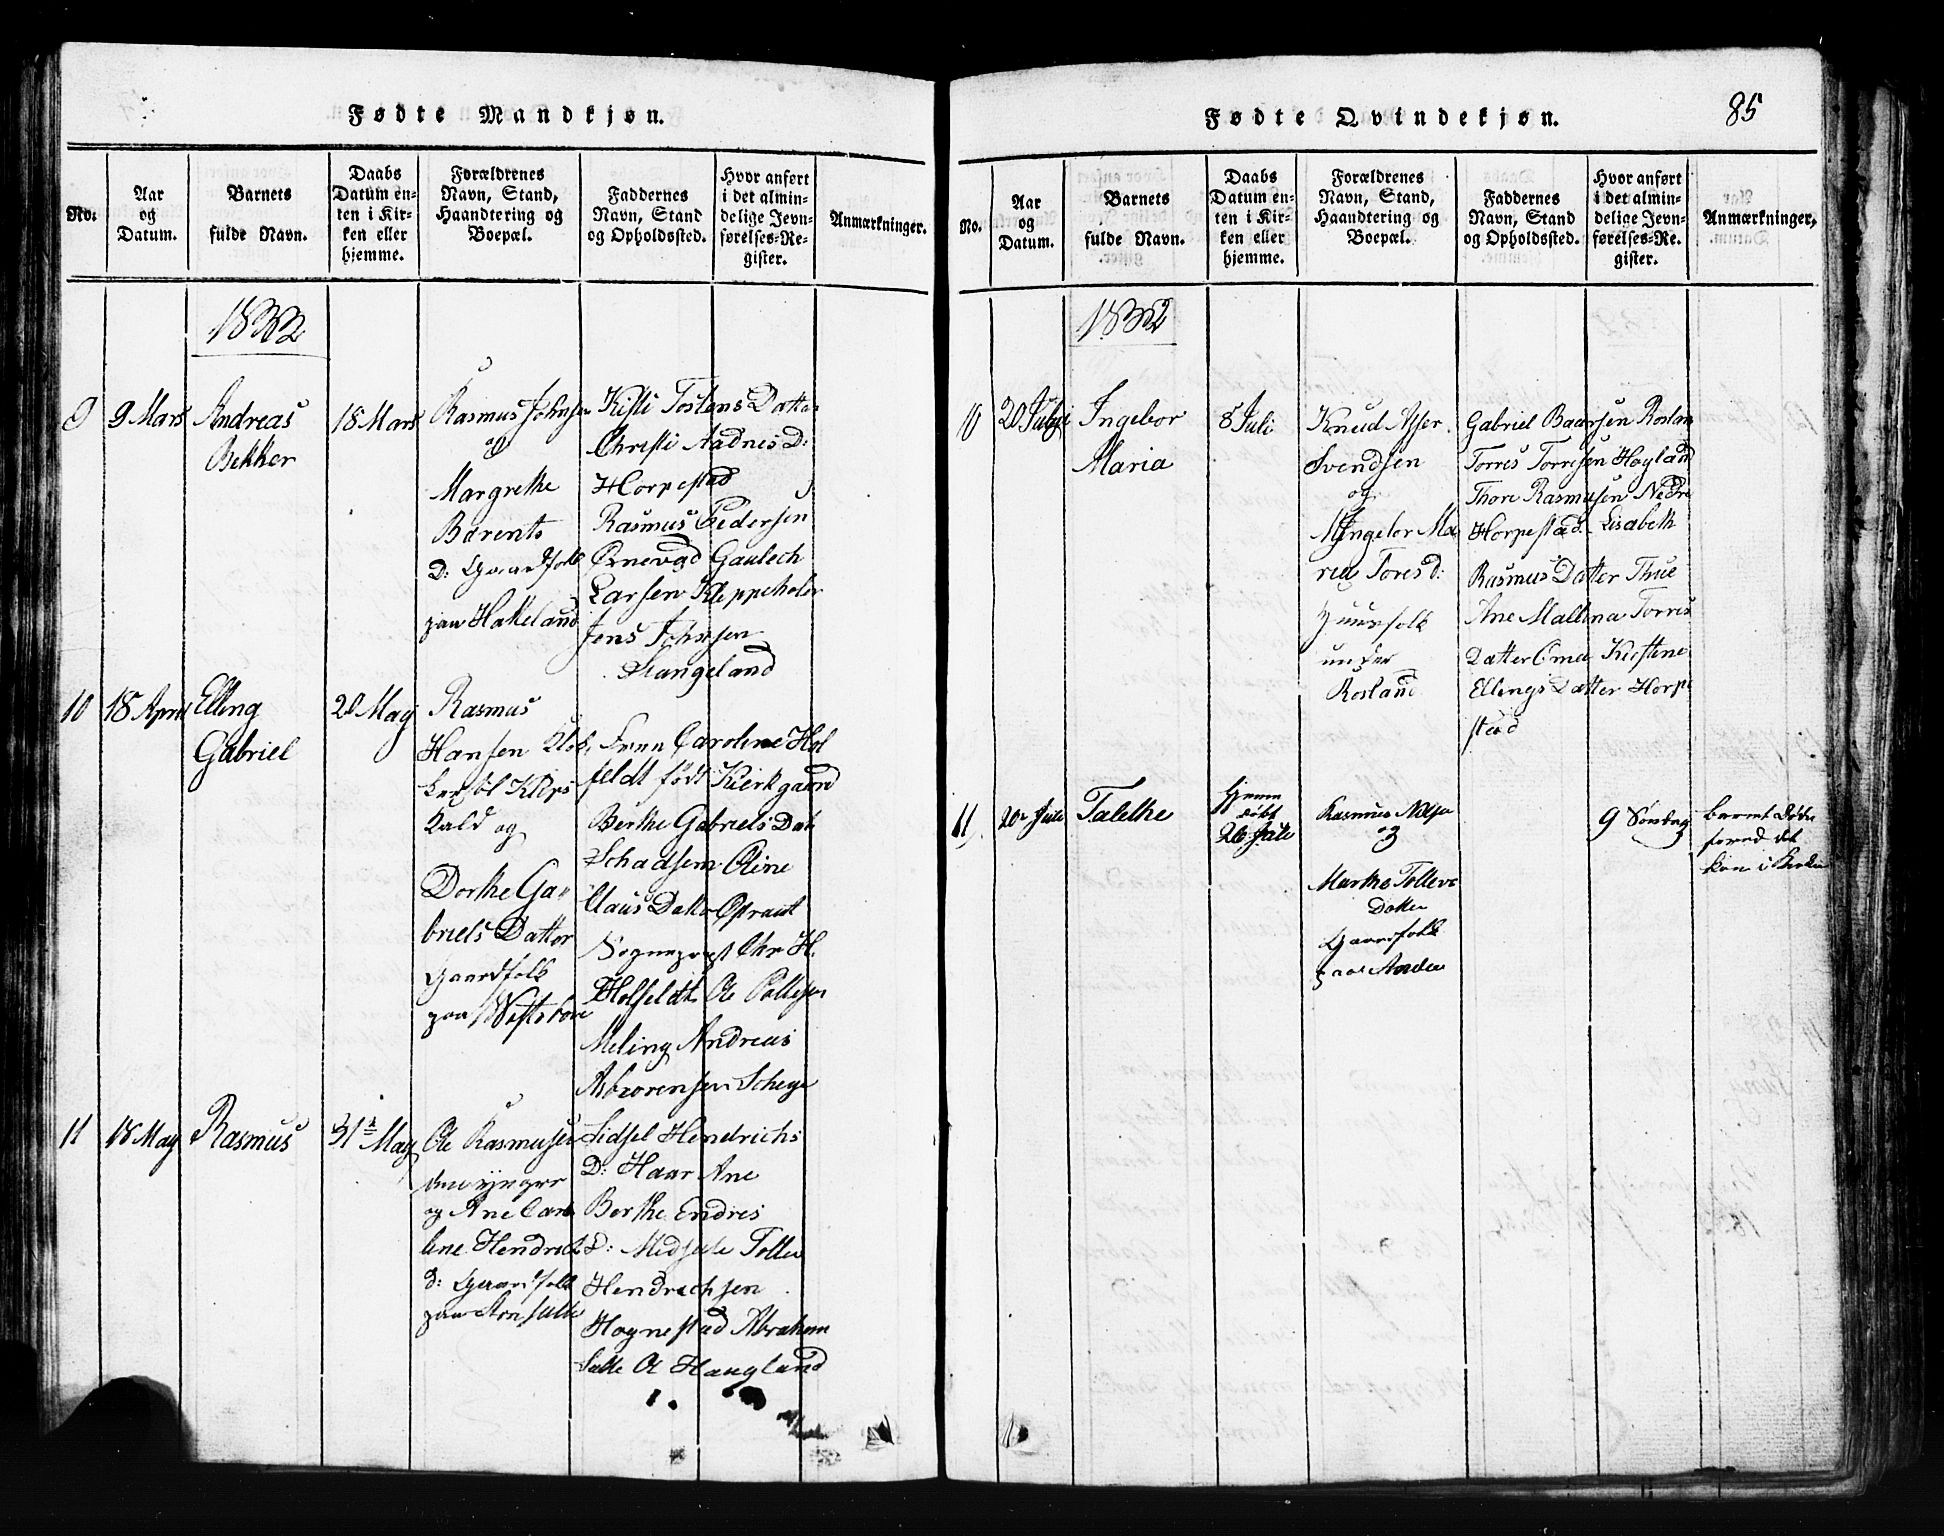 Fødte Mandkjøn.
No.
Aar
og
Datum.
Barnets
fulde Navn.
Daabs
Datum en-
ten i Kir-
ken eller
hjemme.
Forældrenes
Navn, Stand,
Haandtering og
Boepæl.
Faddernes
Navn, Stand
og Opholdssted.
Hvor anført
i det almin-
delige Jevn-
førelses-Re-
gister.
Anmærkninger.
1832
9
9 Mars
Andreas
Bekker
18 Mars
Rasmus Johnsen
og
Margrethe
Barents
D: Gaardfolk
paa Hakeland
Kisti Tostens Datter
Christi Aadnes D:
Horpestad
Rasmus Pedersen
Ørnevad Gaulech
Larsen Kleppeholen
Jens Johnsen
Stangeland
10
18 April
Elling
Gabriel
20 May
Rasmus
Hansen Klok
ker til Klips
Kald og
Dorthe Ga-
briels Datter
Gaardfolk
paa
Frue Caroline Hol
feldt født Kierkgaard
Berthe Gabriels Dat
Schadsem Oline
Claus Datter
Sogneprest Chr H.
Holfeldt Ole Pallesen
Meling Andreas
Asbiorensen Scheye
11
18 May
Rasmus
31te May
Ole Rasmusen
den yngre
og Ane Caro
line Hendrich
D: Gaardfolk
paa salte
Sidsel Hendrichs
D: Haar Ane
Berthe Endres
D: Tolle
Hendrichsen
Hognestad Abraham
Salte Ol Haugland
85
Fødte Qvindekjøn.
No.
Aar
og
Datum.
Barnets
fulde Navn.
Daabs
Datum en-
ten i Kir-
ken eller
hjemme.
Forældrenes
Navn, Stand,
Haandtering og
Boepæl.
Faddernes
Navn, Stand
og Opholdssted.
Hvor anført
i det almin-
delige Jevn-
førelses-Re-
gister.
Anmærkninger,
1832
10
20
Ingebor
Maria
8 Juli
Knud Asser
Svendsen
og
Ingebor Ma
ria Tores d:
Huusfolk
under
Rosland
Gabriel Baarsen Roslan
Torres Torresen Hoyland
Thore Rasmusen Nedre
Horpestad Lisabeth
Rasmus Datter Thue
Ane Mallena Torres
Datter Kirstene
Ellings Datter Horpe
stad
11
20 Juli
Talethe
Hjemme
døbt
26 Juli
Rasmus Nilsen
og
Marthe Tolleve
Datter
Gaardfolk
paa Anda
9 Søndag
barnet døde
førend det
kom i Kirken